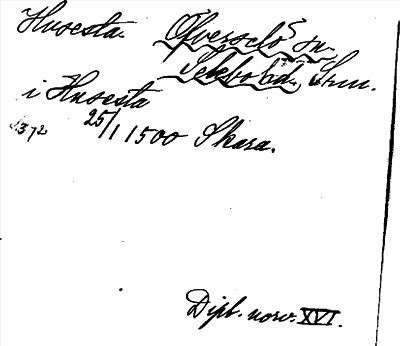 Husesta. Öfverselö sn.
Selebo hd. Srm.
i Husesta
1372 25/1 1500 Skara.
Dipl. norv. XVI.